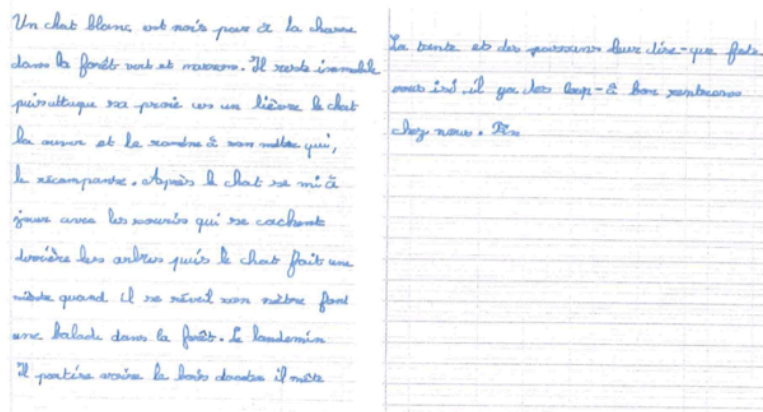 Un chat blanc et noir pare à la chasse
dans la forêt vert et marron. Il reste immobile
puis attaque sa proie un lièvre le chat
la et le ramène à son maître qui,
le récompanse. Après le chat se mi à
jouer avec les souris qui se cachent
derrière les arbres puis le chat fait une
sièste quand il se réveil son maître font
une balade dans la forêt. Le landemin
Il le bois il mète
La tente et des passans leur dire-que fete
vous isi il ya des loup-à bon rentrons
chez nous. Fin